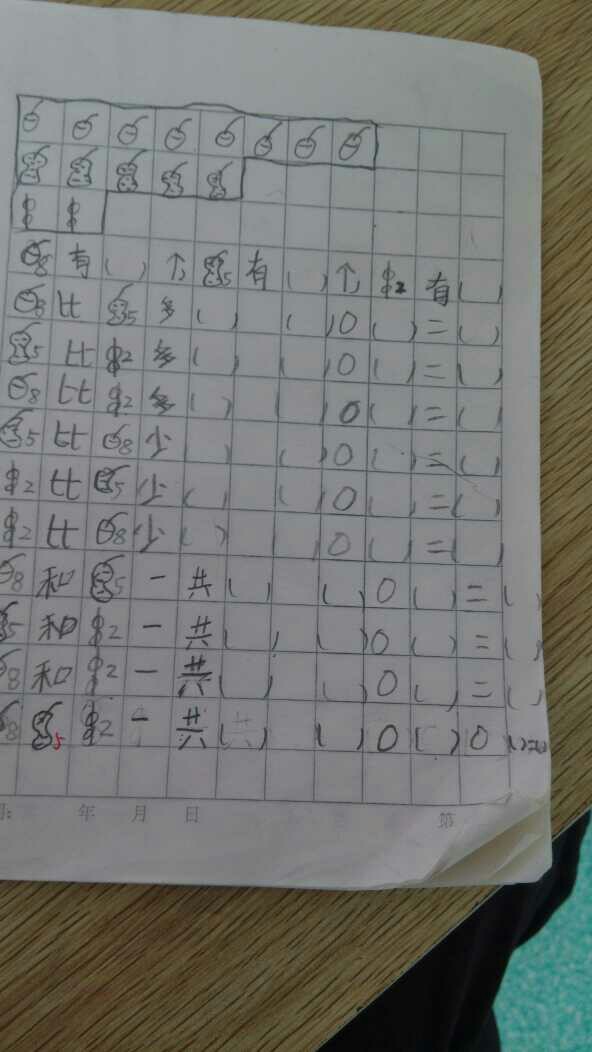 8有( )个 5有( )个 2有( )
8比5多( ) ( )○( )=( )
5比2多( ) ( )○( )=( )
8比2多( ) ( )○( )=( )
5比8少( ) ( )○( )=( )
2比5少( ) ( )○( )=( )
2比8少( ) ( )○( )=( )
8和5一共( ) ( )○( )=( )
5和2一共( ) ( )○( )=( )
8和2一共( ) ( )○( )=( )
8 5 2一共( ) ( )○( )○( )=( )
年 月 日 第